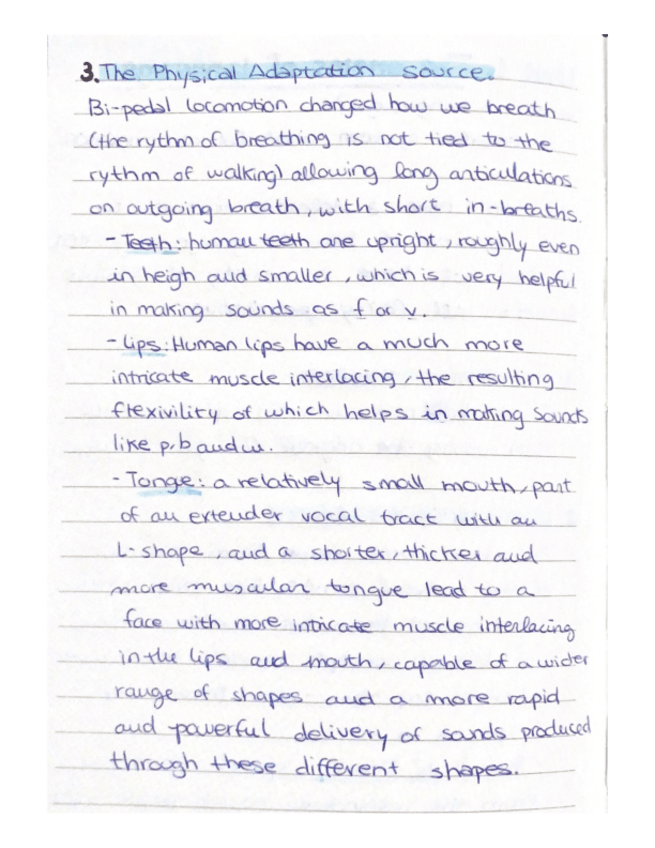 3. The Physical Adaptation source.
Bi-pedal locomotion changed how we breath
(the rythm of breathing is not tied to the
rythm of walking) allowing long anticulations
on outgoing breath, with short in-breaths.
- Teeth: human teeth are upright, roughly even
in heigh and smaller, which is very helpful
in making sounds as f or v.
- Lips: Human lips have a much more
intricate muscle interlacing, the resulting
flexivility of which helps in making sounds
like p, b and w.
- Tonge: a relatively small mouth, part
of an extender vocal tract with an
L-shape, and a shorter, thicker and
more muscular tongue lead to a
face with more intricate muscle interlacing
in the lips and mouth, capable of a wider
range of shapes and a more rapid
and powerful delivery of sounds produced
through these different shapes.